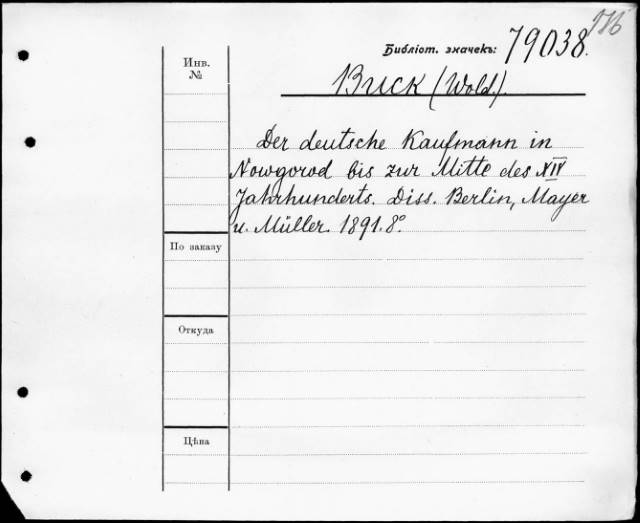 Библіот. значекъ: 79038.
Инв.
№
Buck (Wold.).
Der deutsche Kaufmann in
Nowgorod bis zur Mitte des XIV
Jahrhunderts. Diss. Berlin, Mayer
u. Müller. 1891. 8°.
По заказу
Откуда
Цѣна